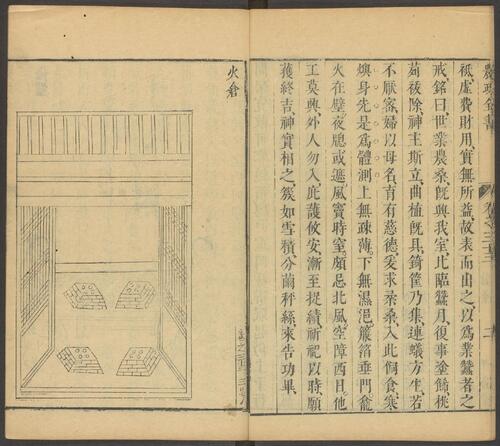 農政全書
祗虛費財用實無所益故表而出之以爲業蠶者之
戒銘曰世業農桑旣興我室比臨蠶月復事塗餙桃
茢祓除神主斯立曲植旣具錡筐乃集連蟻方生若
不厭密婦以母名育有慈德爰求柔桑入此飼食寒
燠身先是爲體測上無疎薄下無濕浥簾箔垂門龕
火在壁夜䆫或遮風竇時窒頗忌北風空障西日他
工莫興外人勿入庇護攸安漸至捉績祈祀以時願
獲終吉神實相之簇如雪積分繭秤絲來告功畢
火倉